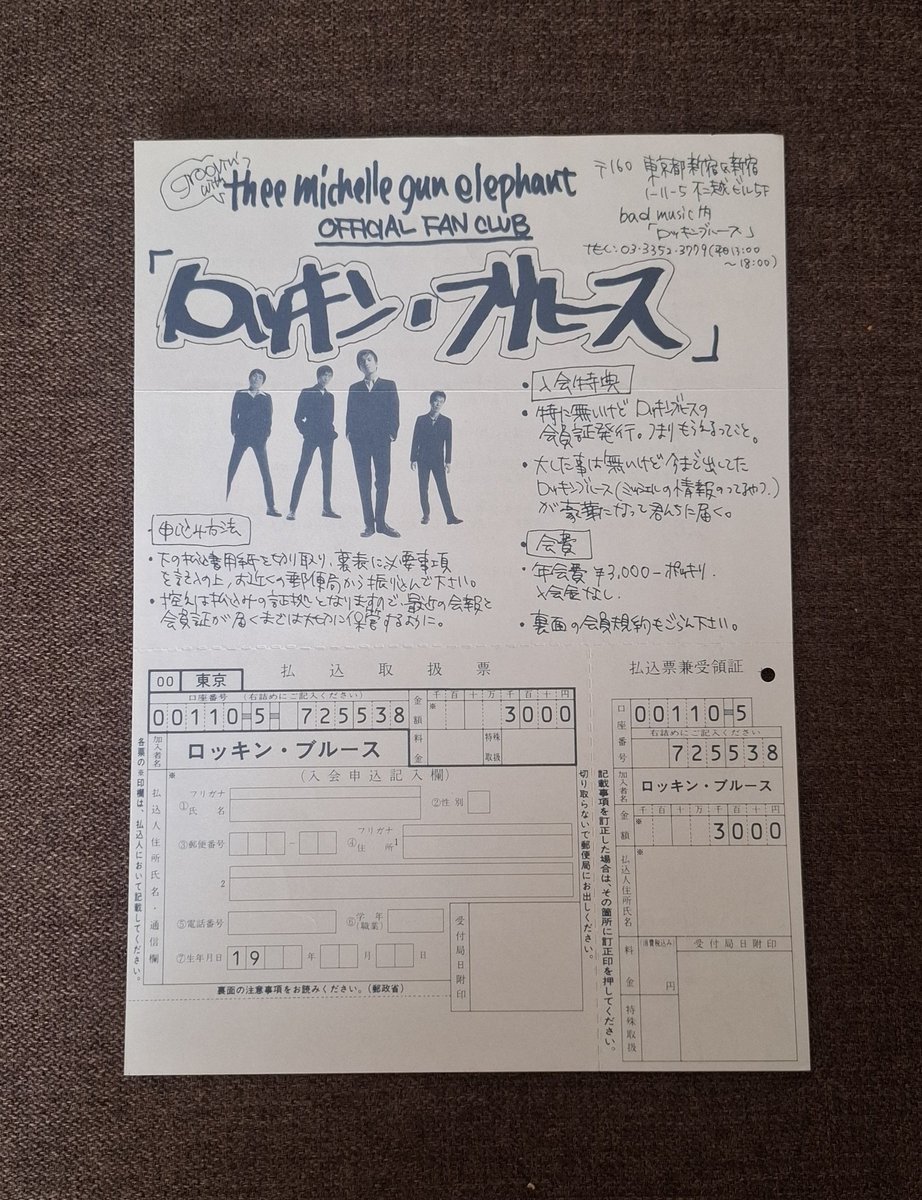 groovin' with
thee michelle gun elephant
OFFICIAL FAN CLUB
「ロッキン・ブルース」
〒160 東京都新宿区新宿
1-11-5 不二越ビル5F
bad music内
「ロッキンブルース」
TEL:03-3352-3779(平日13:00
〜18:00)
・入会特典
・特に無いけどロッキンブルースの
会員証発行。つまりもうえるってこと。
・大した事は無いけど今まで出してた
ロッキンブルース(ミッシェルの情報のってるやつ。)
が豪華になって君んちに届く。
・会費
・年会費 ¥3,000-ポッキリ.
入会金なし.
・裏面の会員規約もごらん下さい。
・申し込み方法
・下の払込書用紙を切り取り、裏表に必要事項
を記入の上、お近くの郵便局から振り込んで下さい。
・控えは払込みの証拠となりますので、最近の会報と
会員証が届くまでは大切に保管するように。
00 東京 払込取扱票
口座番号 (右詰めにご記入ください)
00110-5-725538
金額 千百十万千百十円
※ 3000
加入者名 ロッキン・ブルース
料金 特殊取扱
※ (入会申込記入欄)
払込人住所氏名・通信欄
フリガナ
①氏名
②性別
③郵便番号 -
フリガナ
④住所 1
2
⑤電話番号
⑥学年(職業)
⑦生年月日 19 年 月 日
受付局日附印
裏面の注意事項をお読みください。(郵政省)
各票の※印欄は、払込人において記載してください。
切り取らないで郵便局にお出しください。
記載事項を訂正した場合は、その箇所に訂正印を押してください。
払込票兼受領証
口座番号 00110-5
右詰めにご記入ください
725538
加入者名 ロッキン・ブルース
金額 千百十万千百十円
※ 3000
※
払込人住所氏名
料金 (消費税込み) 円
受付局日附印
特殊取扱